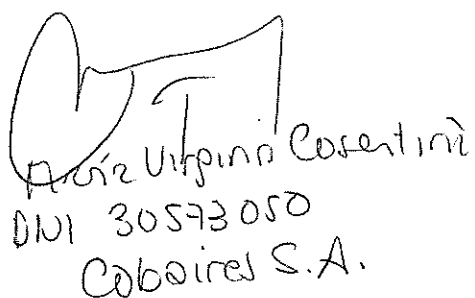 María Virginia Cosentini
DNI 30573050
Cobaires S.A.